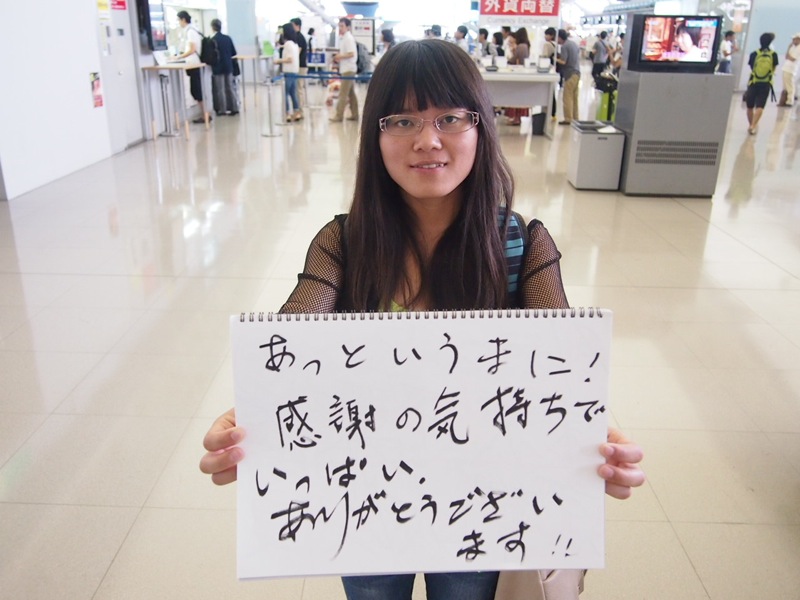 外貨両替
Currency Exchange
あっというまに!
感謝の気持ちで
いっぱい.
ありがとうござい
ます!!